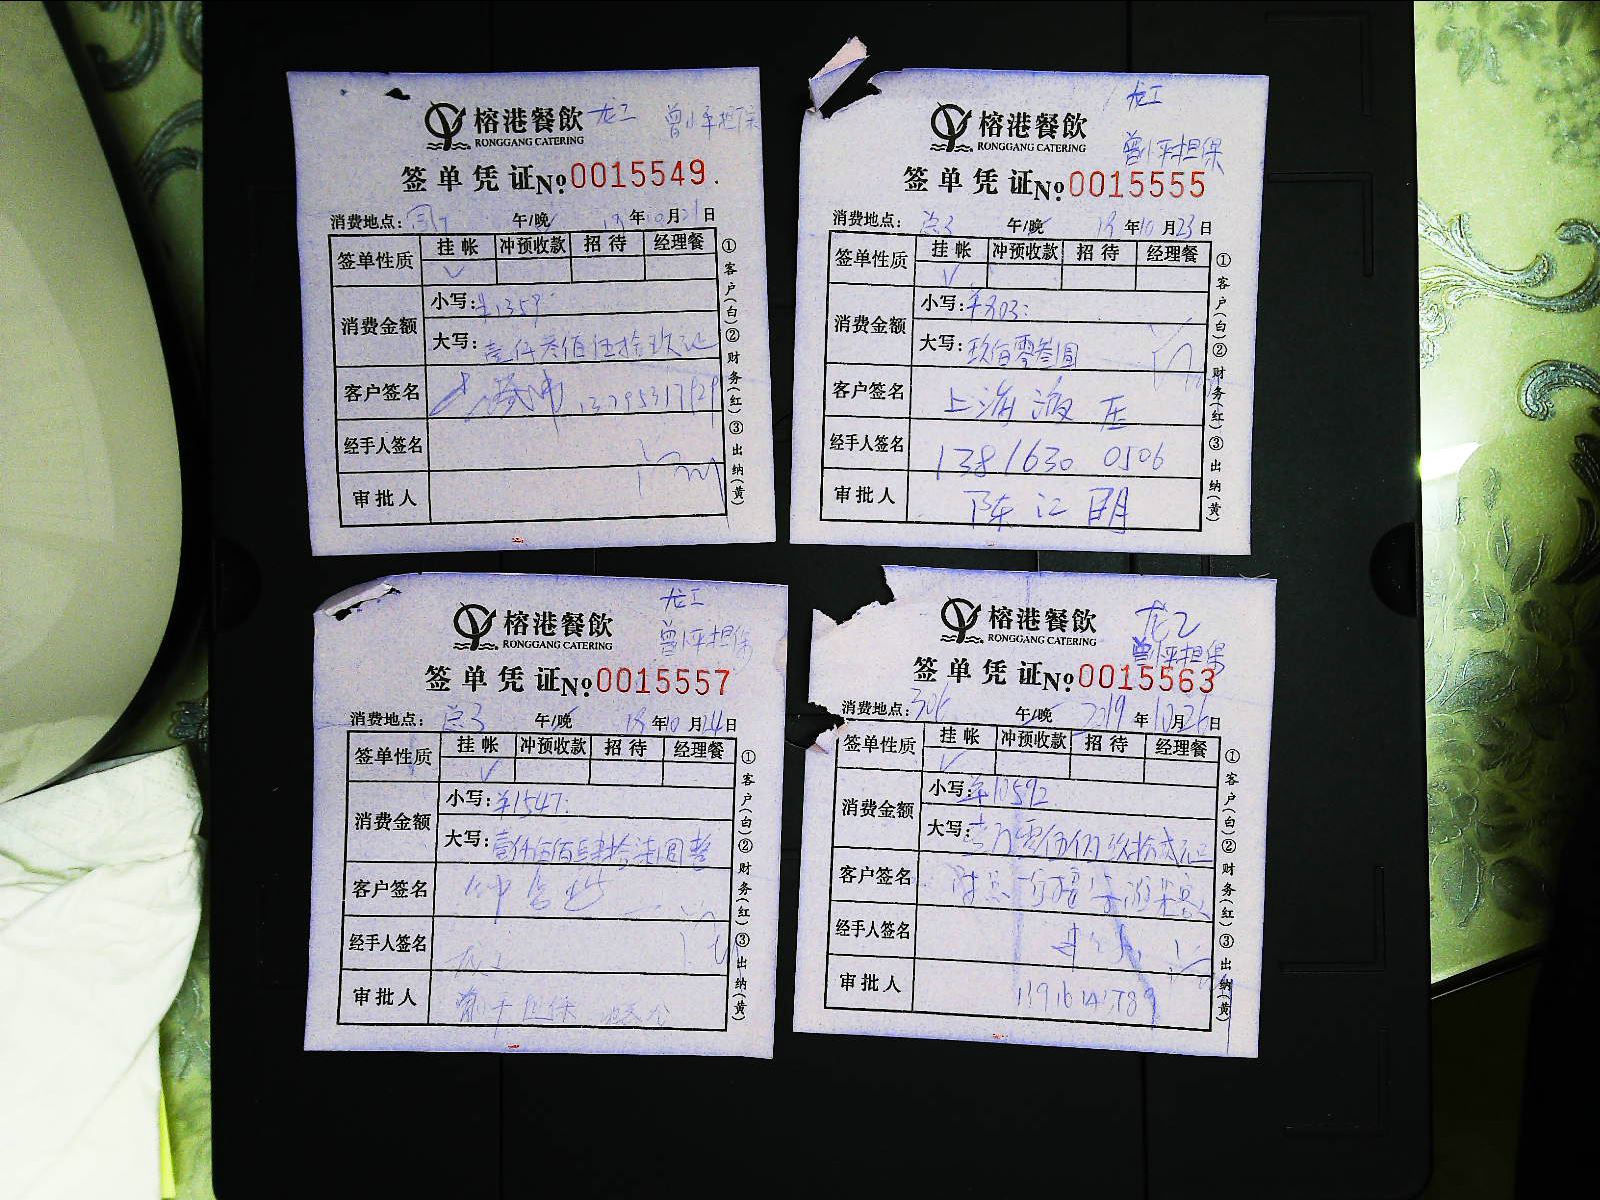 榕港餐飲 龙工 曾小平担保
RONGGANG CATERING
签单凭证 No 0015549.
消费地点: 午/晚 19年10月21日
签单性质 挂帐 冲预收款 招待 经理餐
✓
消费金额
小写: ¥1359
大写: 壹仟叁佰伍拾玖元
客户签名
经手人签名
审批人
①客户(白)②财务(红)③出纳(黄)
龙工
榕港餐飲
RONGGANG CATERING
曾小平担保
签单凭证 No 0015555
消费地点: 总3 午/晚 19年10月23日
签单性质 挂帐 冲预收款 招待 经理餐
✓
消费金额
小写: ¥903:
大写: 玖佰零叁圆
客户签名 上海
经手人签名 1381630 0506
审批人 陈江明
①客户(白)②财务(红)③出纳(黄)
龙工
榕港餐飲 曾小平担保
RONGGANG CATERING
签单凭证 No 0015557
消费地点: 总3 午/晚 19年10月24日
签单性质 挂帐 冲预收款 招待 经理餐
✓
消费金额
小写: ¥1547:
大写: 壹仟伍佰肆拾柒圆整
客户签名
经手人签名 龙工
审批人
①客户(白)②财务(红)③出纳(黄)
榕港餐飲 龙工
RONGGANG CATERING
曾小平担保
签单凭证 No 0015563
消费地点: 306 午/晚 2019年10月26日
签单性质 挂帐 冲预收款 招待 经理餐
✓
消费金额
小写: ¥10592
大写: 壹万零伍佰玖拾贰元正
客户签名
经手人签名
审批人
①客户(白)②财务(红)③出纳(黄)